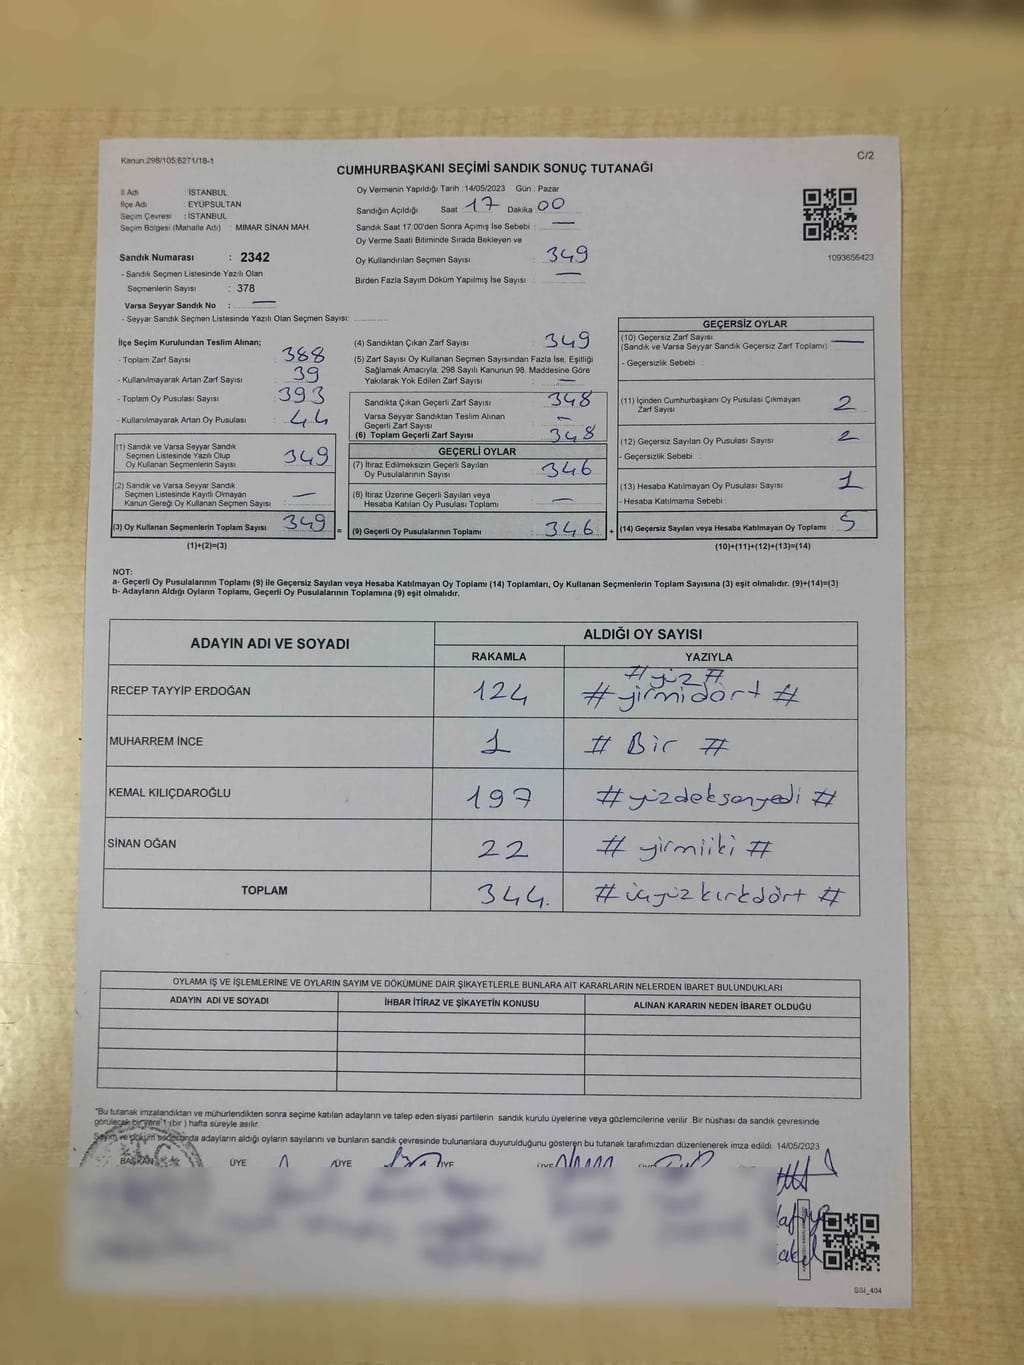 Kanun:298/105,6271/18-1
C/2
CUMHURBAŞKANI SEÇİMİ SANDIK SONUÇ TUTANAĞI
İl Adı : İSTANBUL
İlçe Adı : EYÜPSULTAN
Seçim Çevresi : İSTANBUL
Seçim Bölgesi (Mahalle Adı) : MİMAR SİNAN MAH
Sandık Numarası : 2342
- Sandık Seçmen Listesinde Yazılı Olan
Seçmenlerin Sayısı : 378
Varsa Seyyar Sandık No : —
- Seyyar Sandık Seçmen Listesinde Yazılı Olan Seçmen Sayısı: ............
Oy Vermenin Yapıldığı Tarih : 14/05/2023 Gün : Pazar
Sandığın Açıldığı Saat 17 Dakika 00
Sandık Saat 17.00'den Sonra Açımış İse Sebebi : —
Oy Verme Saati Bitiminde Sırada Bekleyen ve
Oy Kullandırılan Seçmen Sayısı : 349
Birden Fazla Sayım Döküm Yapılmış İse Sayısı : —
1093656423
İlçe Seçim Kurulundan Teslim Alınan;
- Toplam Zarf Sayısı : 388
- Kullanılmayarak Artan Zarf Sayısı : 39
- Toplam Oy Pusulası Sayısı : 393
- Kullanılmayarak Artan Oy Pusulası : 44
(1) Sandık ve Varsa Seyyar Sandık
Seçmen Listesinde Yazılı Olup
Oy Kullanan Seçmenlerin Sayısı : 349
(2) Sandık ve Varsa Seyyar Sandık
Seçmen Listesinde Kayıtlı Olmayan
Kanun Gereği Oy Kullanan Seçmen Sayısı : —
(3) Oy Kullanan Seçmenlerin Toplam Sayısı : 349 =
(1)+(2)=(3)
(4) Sandıktan Çıkan Zarf Sayısı : 349
(5) Zarf Sayısı Oy Kullanan Seçmen Sayısından Fazla İse, Eşitliği
Sağlamak Amacıyla, 298 Sayılı Kanunun 98. Maddesine Göre
Yakılarak Yok Edilen Zarf Sayısı : —
Sandıkta Çıkan Geçerli Zarf Sayısı : 348
Varsa Seyyar Sandıktan Teslim Alınan
Geçerli Zarf Sayısı : —
(6) Toplam Geçerli Zarf Sayısı : 348
GEÇERLİ OYLAR
(7) İtiraz Edilmeksizin Geçerli Sayılan
Oy Pusulalarının Sayısı : 346
(8) İtiraz Üzerine Geçerli Sayılan veya
Hesaba Katılan Oy Pusulası Toplamı : —
(9) Geçerli Oy Pusulalarının Toplamı : 346 +
GEÇERSİZ OYLAR
(10) Geçersiz Zarf Sayısı
(Sandık ve Varsa Seyyar Sandık Geçersiz Zarf Toplamı) : —
- Geçersizlik Sebebi :
(11) İçinden Cumhurbaşkanı Oy Pusulası Çıkmayan
Zarf Sayısı : 2
(12) Geçersiz Sayılan Oy Pusulası Sayısı : 2
- Geçersizlik Sebebi :
(13) Hesaba Katılmayan Oy Pusulası Sayısı : 1
- Hesaba Katılmama Sebebi :
(14) Geçersiz Sayılan veya Hesaba Katılmayan Oy Toplamı : 5
(10)+(11)+(12)+(13)=(14)
NOT:
a- Geçerli Oy Pusulalarının Toplamı (9) ile Geçersiz Sayılan veya Hesaba Katılmayan Oy Toplamı (14) Toplamları, Oy Kullanan Seçmenlerin Toplam Sayısına (3) eşit olmalıdır. (9)+(14)=(3)
b- Adayların Aldığı Oyların Toplamı, Geçerli Oy Pusulalarının Toplamına (9) eşit olmalıdır.
ADAYIN ADI VE SOYADI
ALDIĞI OY SAYISI
RAKAMLA YAZIYLA
RECEP TAYYİP ERDOĞAN 124 # yüz #
# yirmidört #
MUHARREM İNCE 1 # Bir #
KEMAL KILIÇDAROĞLU 197 # yüzdoksanyedi #
SİNAN OĞAN 22 # yirmiiki #
TOPLAM 344. # üçyüzkırkdört #
OYLAMA İŞ VE İŞLEMLERİNE VE OYLARIN SAYIM VE DÖKÜMÜNE DAİR ŞİKAYETLERLE BUNLARA AİT KARARLARIN NELERDEN İBARET BULUNDUKLARI
ADAYIN ADI VE SOYADI İHBAR İTİRAZ VE ŞİKAYETİN KONUSU ALINAN KARARIN NEDEN İBARET OLDUĞU
*Bu tutanak imzalandıktan ve mühürlendikten sonra seçime katılan adayların ve talep eden siyasi partilerin sandık kurulu üyelerine veya gözlemcilerine verilir. Bir nüshası da sandık çevresinde
görülecek bir yere 1 (bir ) hafta süreyle asılır.
Sayım ve döküm sonucunda adayların aldığı oyların sayılarını ve bunların sandık çevresinde bulunanlara duyurulduğunu gösteren bu tutanak tarafımızdan düzenlenerek imza edildi. 14/05/2023
BAŞKAN ÜYE ÜYE ÜYE ÜYE
SSI_404